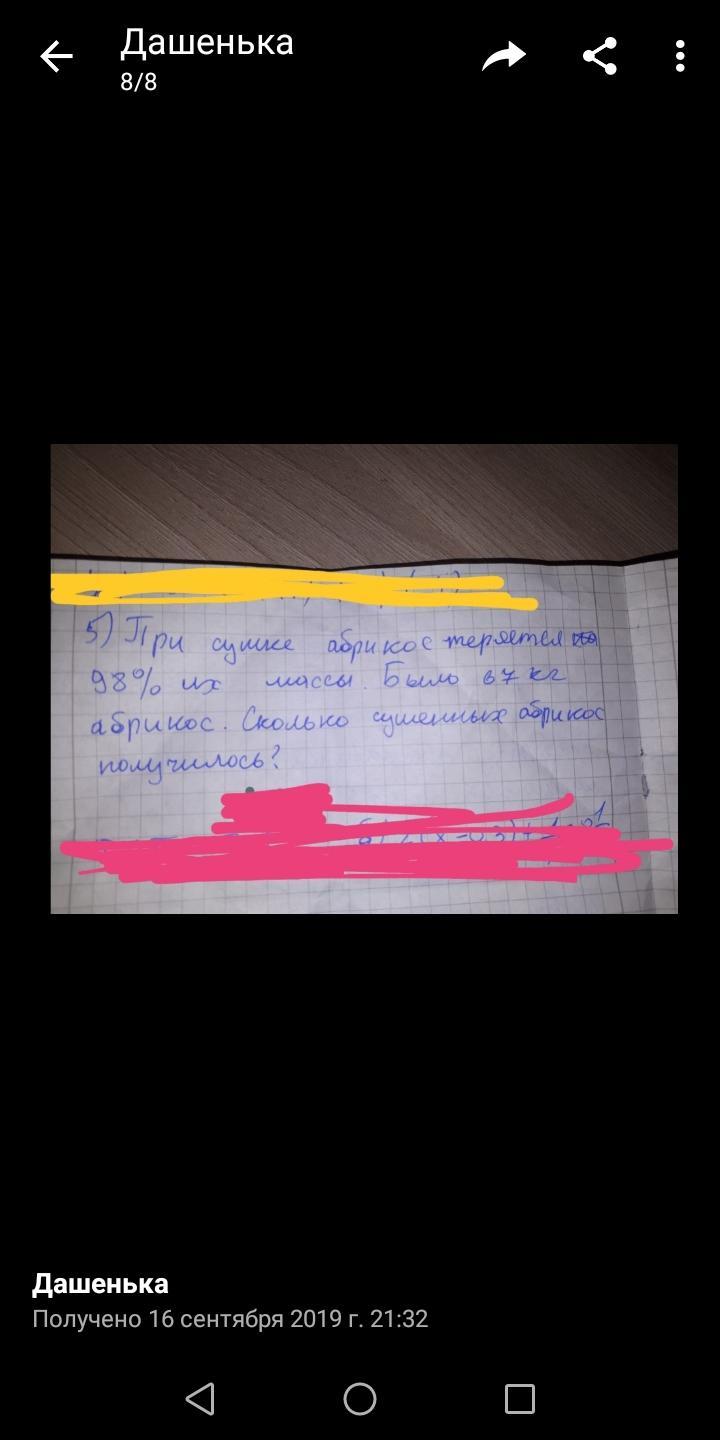 Дашенька
8/8
5) При сушке абрикос теряется
98% их массы. Было 67 кг
абрикос. Сколько сушенных абрикос
получилось?
Дашенька
Получено 16 сентября 2019 г. 21:32